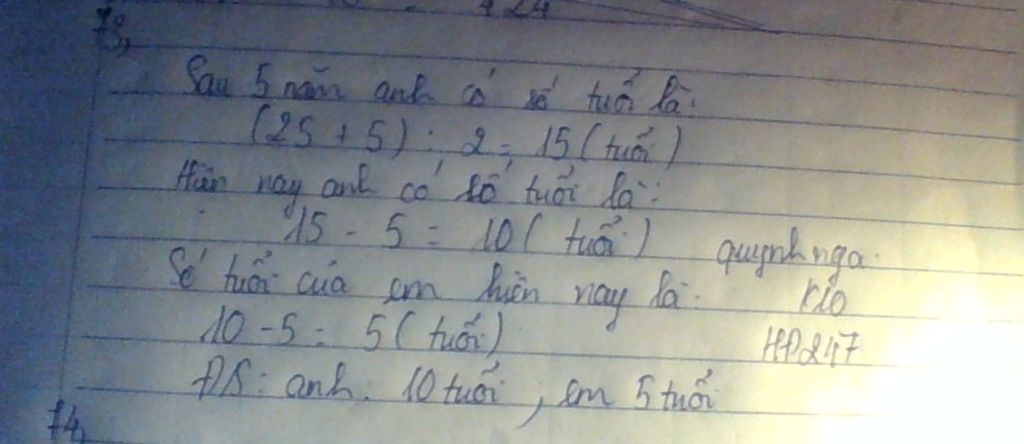 424
73,
Sau 5 năm anh có số tuổi là:
(25 + 5) : 2 = 15 (tuổi)
Hiện nay anh có số tuổi là:
15 - 5 = 10 (tuổi)
quynh nga
Số tuổi của em hiện nay là:
rio
10 - 5 = 5 (tuổi)
HP247
ĐS: anh: 10 tuổi, em 5 tuổi
74,